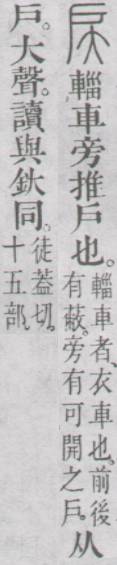 戾輜車旁推戶也。輜車者、衣車也。前後有蔽。旁有可開之戶。从
戶。大聲。讀與釱同。徒蓋切。十五部。